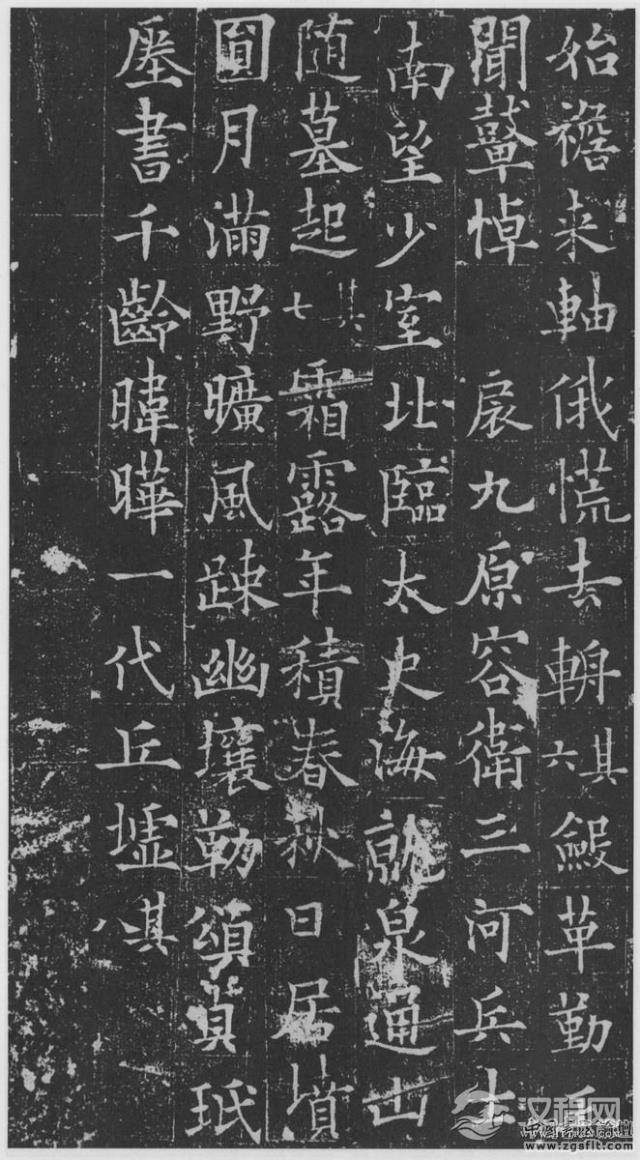 始襜来軸俄慌去輈其六革勤
聞鼙悼扆九原容衛三河兵士
南望少室北臨太史海就泉通山
随墓起其七霜露年積春秋日居墳
圓月滿野曠風踈幽壤勒頌貞珉
書千齡暐曄一代丘墟其八
汉程网
www.zgsflt.com